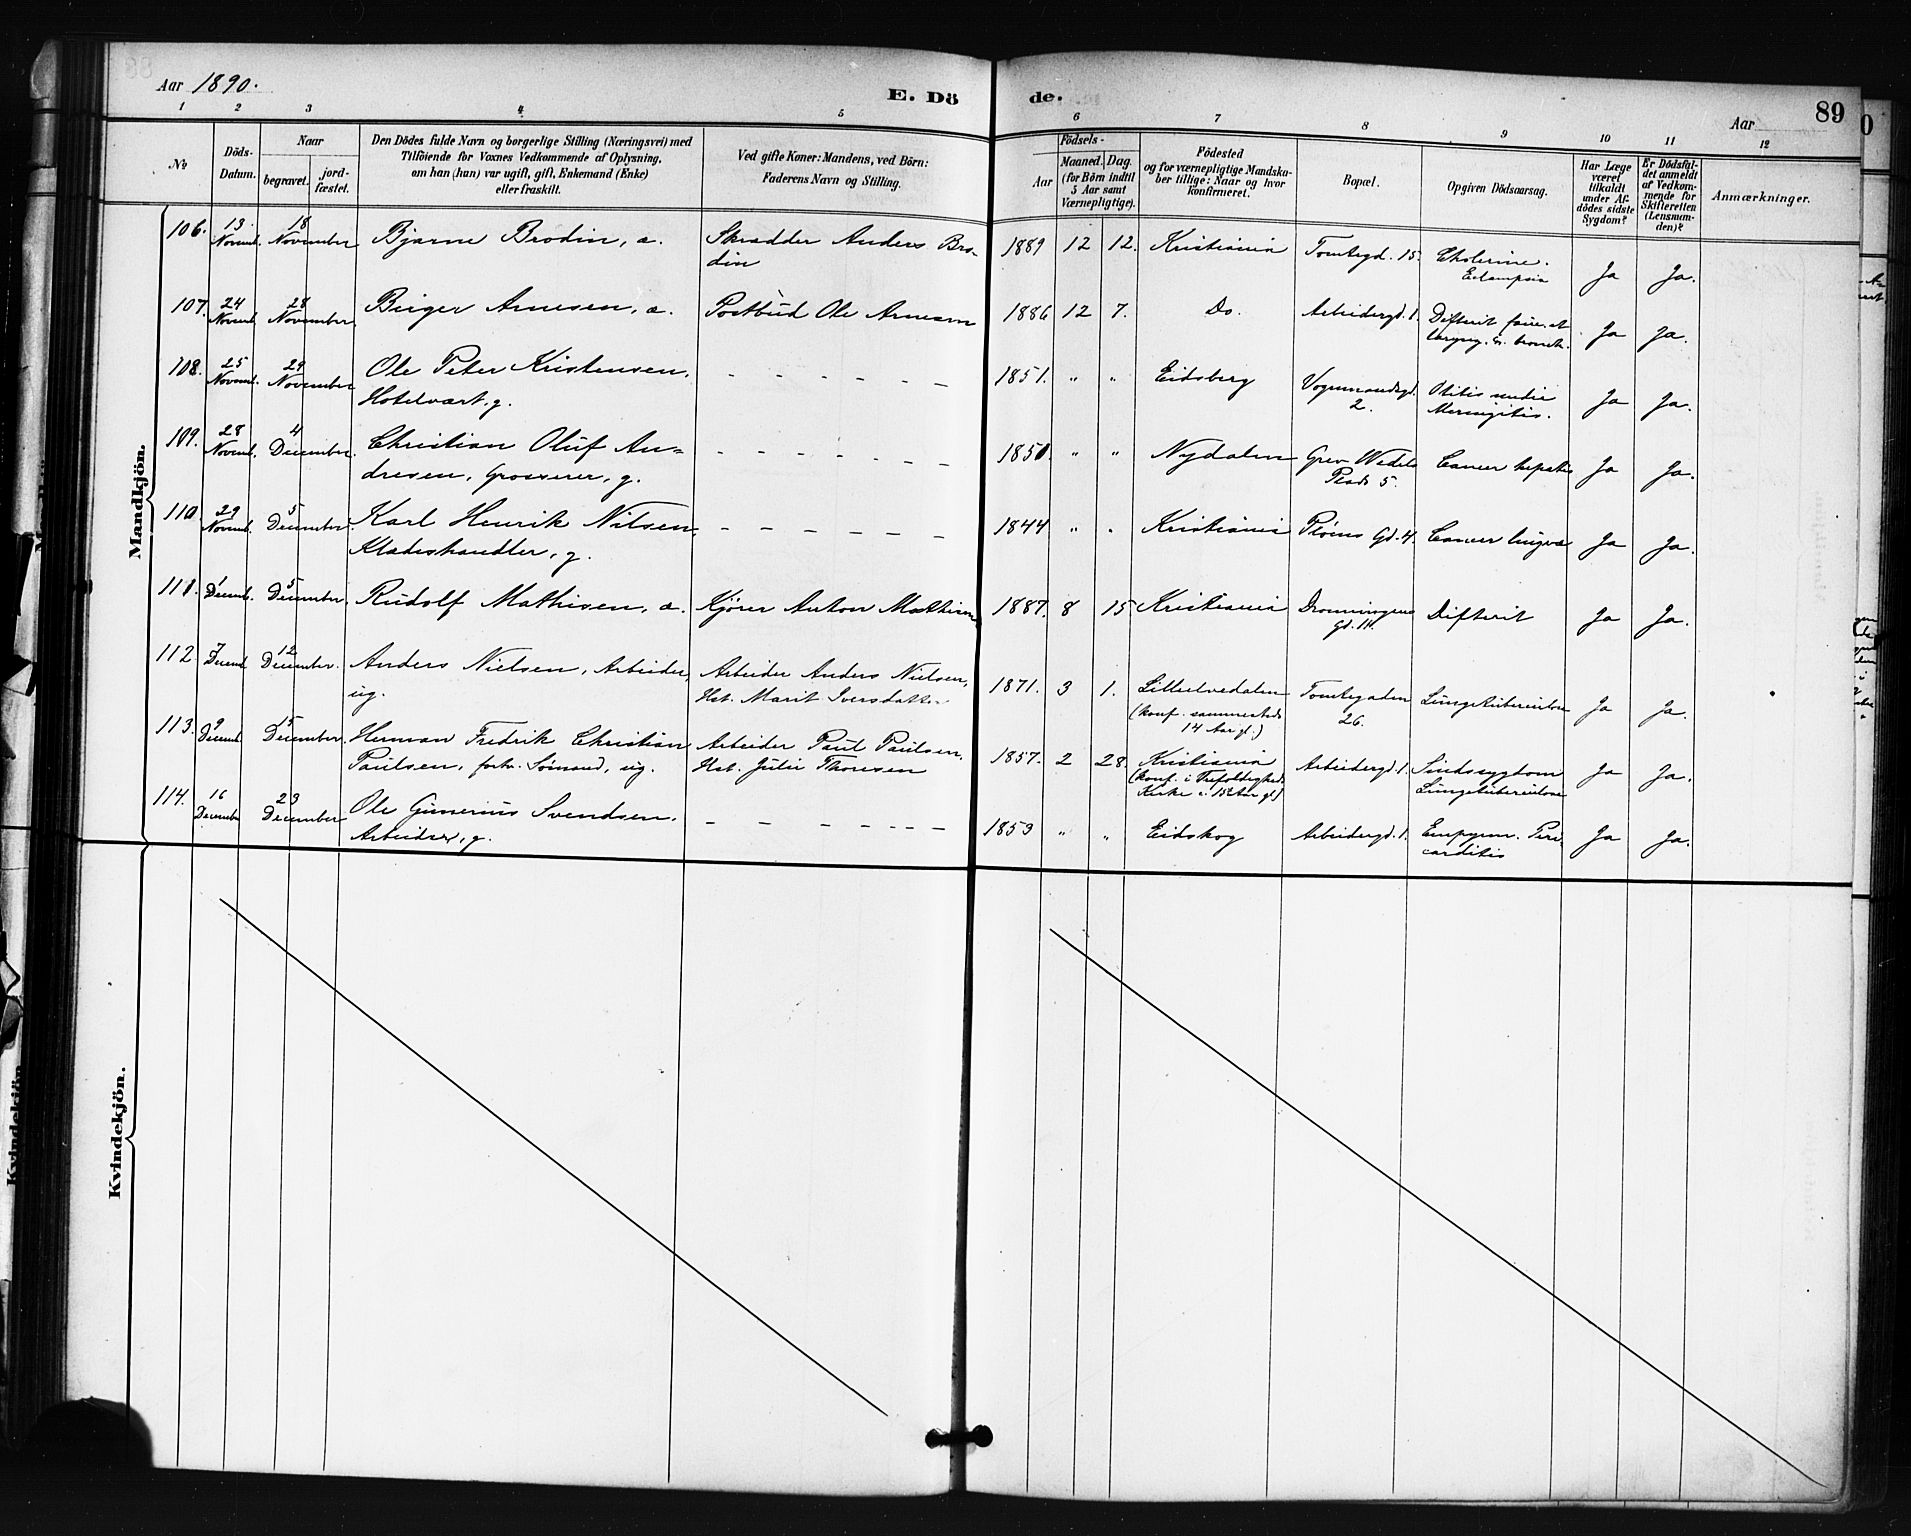 Aar 1890.
E. Dö
de.
Aar
89
1 2 3 4 5
6 7 8 9 10 11 12
No
Döds-Datum.
Naar
begravet.
jord-fæstet.
Den Dödes fulde Navn og borgerlige Stilling (Næringsvei) med
Tilföiende for Voxnes Vedkommende af Oplysning,
om han (hun) var ugift, gift, Enkemand (Enke)
eller fraskilt.
Ved gifte Koner: Mandens, ved Börn:
Faderens Navn og Stilling.
Födsels-
Aar
Maaned. Dag.
(for Börn indtil
5 Aar samt
Værnepligtige).
Födested
og for værnepligtige Mandska-
ber tillige: Naar og hvor
konfirmeret.
Bopæl.
Opgiven Dödsaarsag.
Har Læge
været
tilkaldt
under Af-
dödes sidste
Sygdom?
Er Dödsfal-
det anmeldt
af Vedkom-
mende for
Skifteretten
(Lensman-
den)?
Anmærkninger.
Mandkjön.
106. 13. Novemb. 18 November Bjarne Brodin, a. Skrædder Anders Bro-
din
1889 12 12. Kristiania Tomtegd. 15. Cholerine.
Eclampsia Ja Ja.
107. 24 Novemb. 28 November Birger Arnesen, a. Postbud Ole Arnesen
1886 12 7. Do. Arbeidergd. 1. Difterit
Ja Ja.
108. 25 Novemb. 29 November Ole Peter Kristensen,
Hotelvært, g. – – – – – –
1851. " " Eidsberg Vognmandsgd.
2. Otitis media
Meningitis. Ja Ja.
109. 28 Novemb. 4 December. Christian Oluf An-
dresen, Grosserer, g. – – – – – – –
1850. " " Nydalen Grev Wedels
Plads 5. Cancer hepatis Ja Ja.
110. 29 Novemb. 5 December. Karl Henrik Nilsen,
Klædeshandler, g. – – – – – –
1844 " " Kristiania Pløens Gd. 4. Cancer lingvæ Ja Ja.
111. 1 Decemb. 5 December. Rudolf Mathisen, a. Kjører Anton Mathisen
1887. 8 15 Kristiania Dronningens
Gd. Difterit Ja Ja.
112. 7 Decemb. 12 December. Anders Nielsen, Arbeider,
ug. Arbeider Anders Nielsen,
Hst. Marit Iversdatter
1871. 3 1. Lilleelvedalen
(konf. sammesteds
14 Aar gl.) Tomtegaden
26. Lungetuberculose Ja Ja.
113. 9 Decemb. 15 December. Herman Fredrik Christian
Paulsen, forhv. Sømand, ug. Arbeider Paul Paulsen.
Hst. Julie Thoresen
1857. 2 28. Kristiania
(konf. i Trefoldigheds
Kirke i 15de Aar gl.) Arbeidergd. 1. Sindssygdom
Lungetuberculose Ja Ja.
114. 16 December 23 December Ole Gunerius Svendsen.
Arbeider, g. – – – – – – –
1859 " " Eidskog Arbeidergd. 1. Empyem. Peri-
carditis Ja Ja.
Kvindekjön.